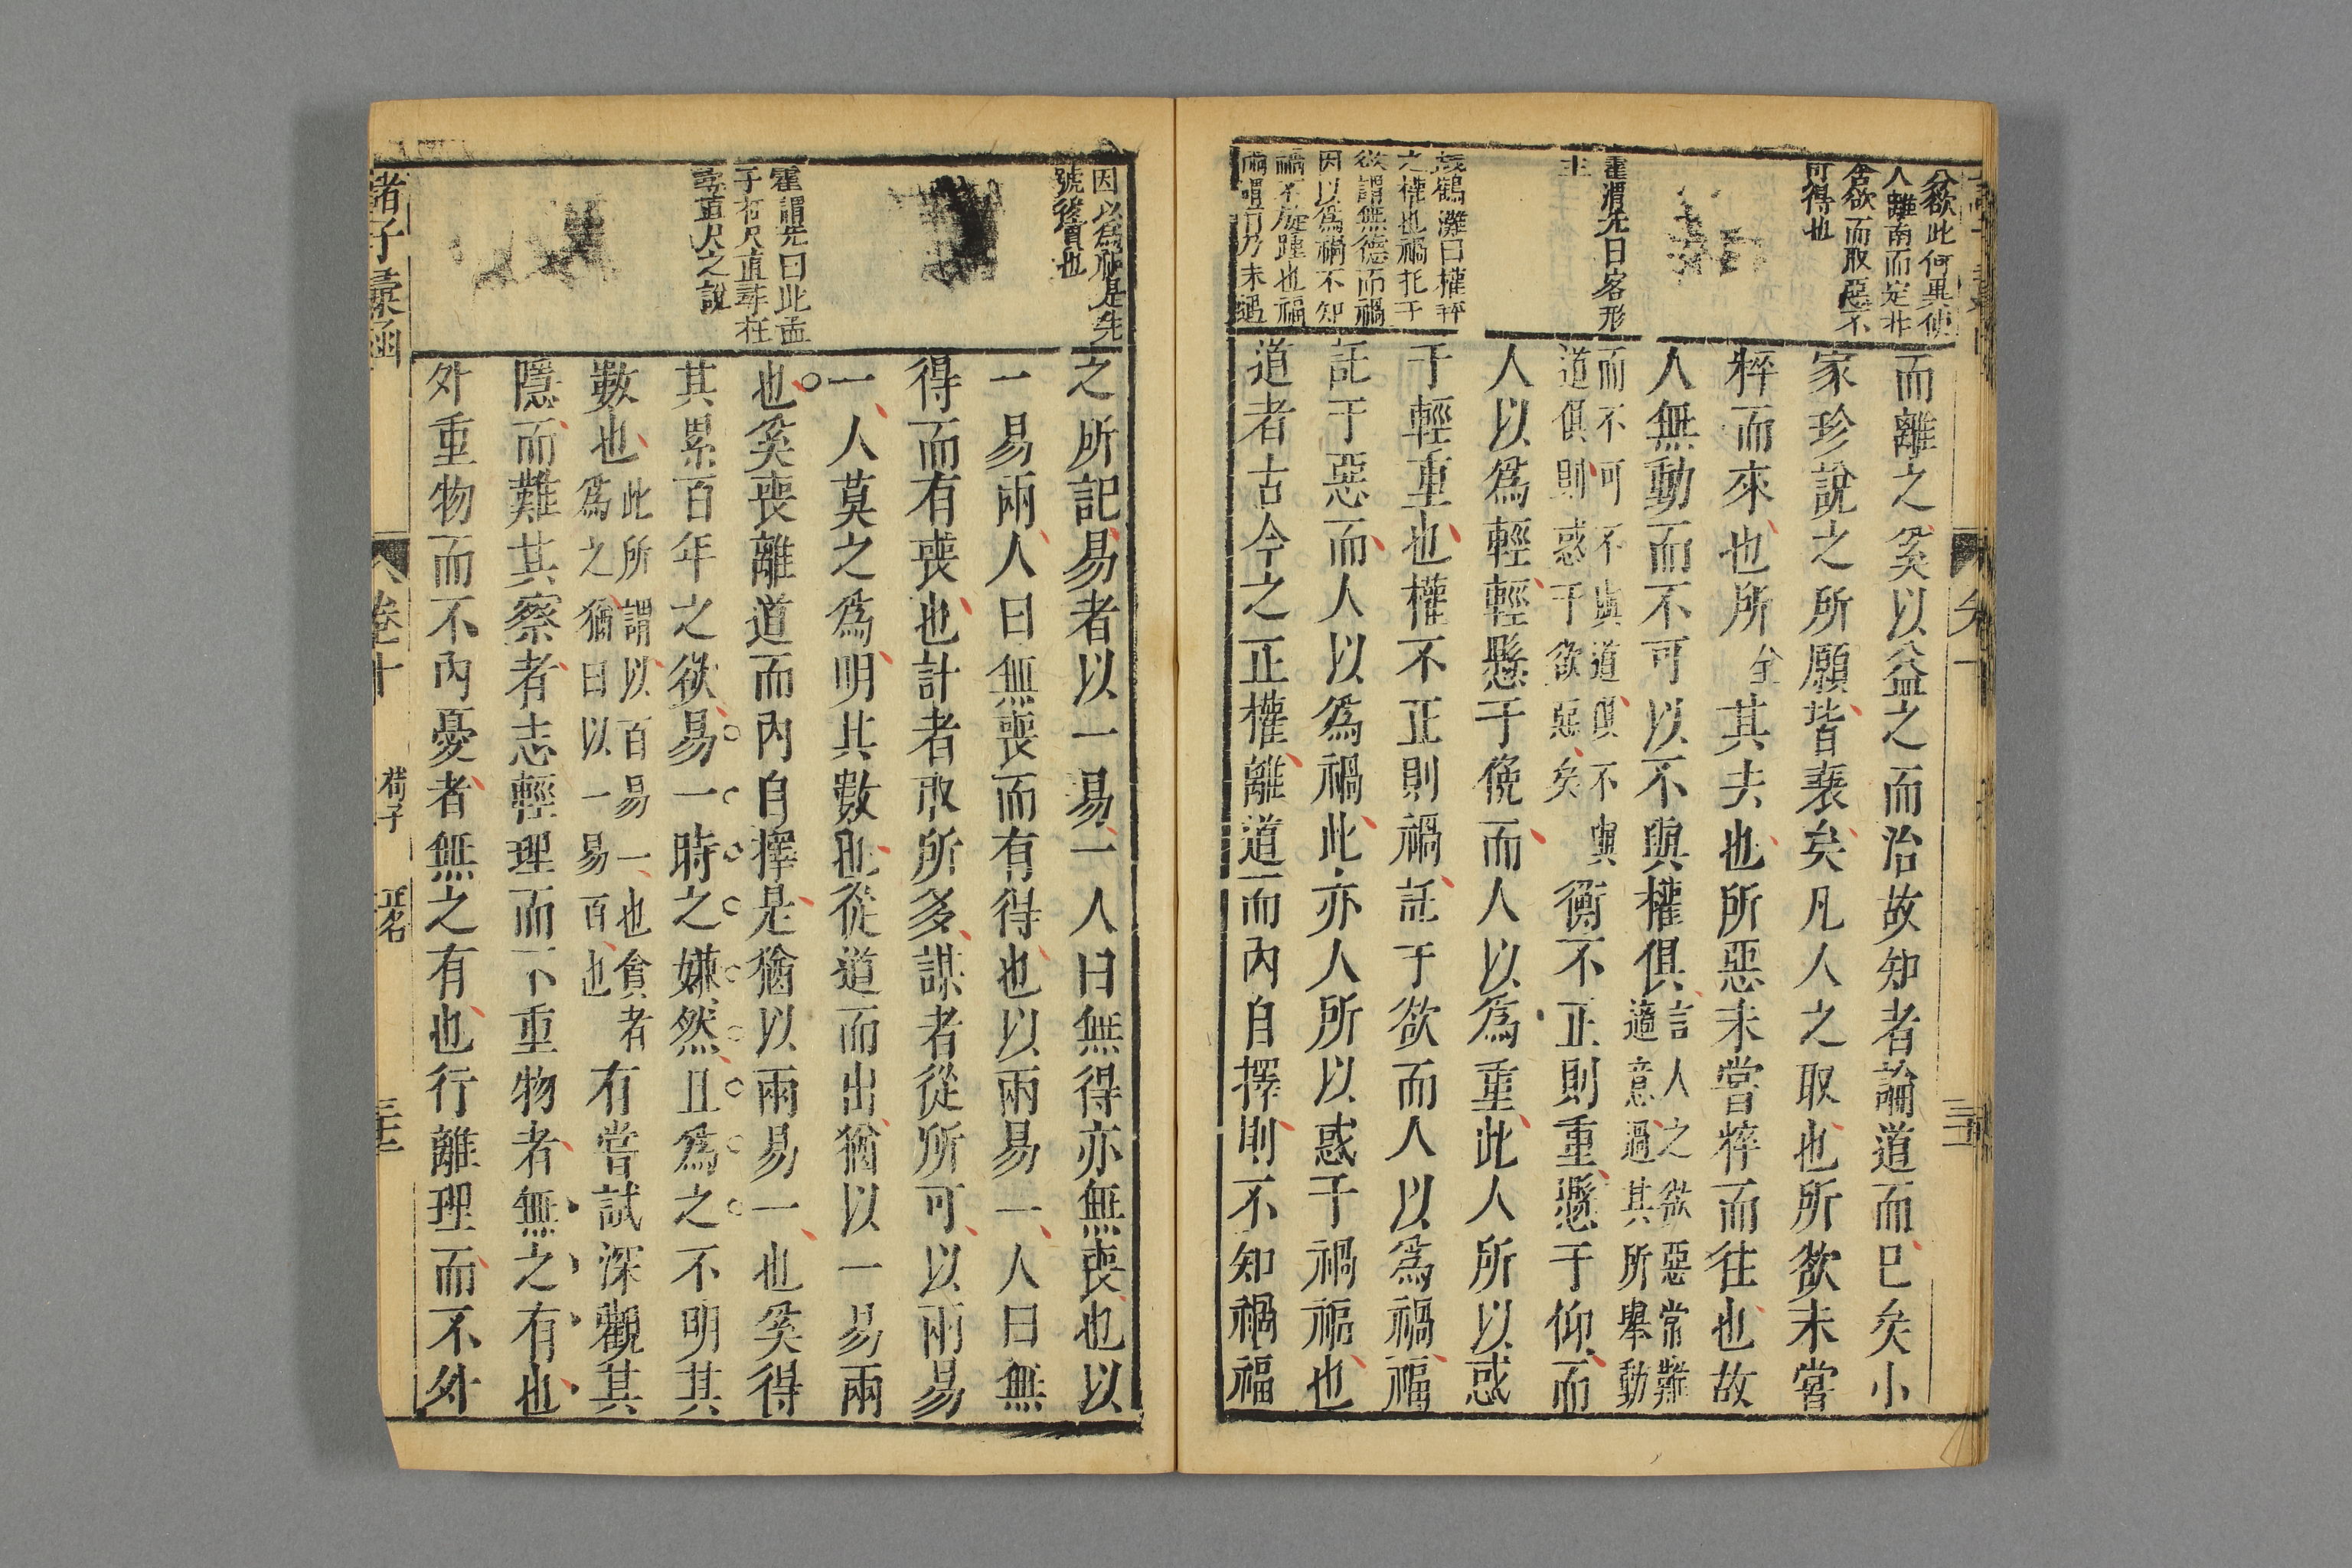 公欲此何異使
人離南而定北
舍欲而取惡不
可得也
霍渭先曰客形
主
之權也禍托于
欲謂無德而禍
因以爲禍不知
而離之奚以益之而治故知者論道而已矣小
家珍說之所願皆衰矣凡人之取也所欲未嘗
粹而來也所仝其去也所惡未嘗粹而往也故
人無動而不可以不與權俱言人之欲惡常難
適意過其所舉動
而不可不與道俱不與
道俱則惑于欲惡矣
衡不正則重懸于仰而
人以爲輕輕懸于俛而人以爲重此人所以惑
于輕重也權不正則禍託于欲而人以爲禍福
託于惡而人以爲禍此亦人所以惑于禍福也
道者古今之正權離道而內自擇則不知禍福
因以爲福是先
號後
也
霍謂先曰此孟
子枉尺直尋枉
尋直尺之說
之所託易者以一易一人曰無得亦無喪也以
一易兩人曰無喪而有得也以兩易一人曰無
得而有喪也計者取所多謀者從所可以兩易
一人莫之爲明其數也從道而出猶以一易兩
也奚喪離道而內自擇是猶以兩易一也奚得
其累百年之欲易一時之嫌然且爲之不明其
數也此所謂以百易一也貪者
爲之猶曰以一易百也
有嘗試深觀其
隱而難其察者志輕理而不重物者無之有也
外重物而不內憂者無之有也行離理而不外
諸子彙函
卷十
荀子
正名